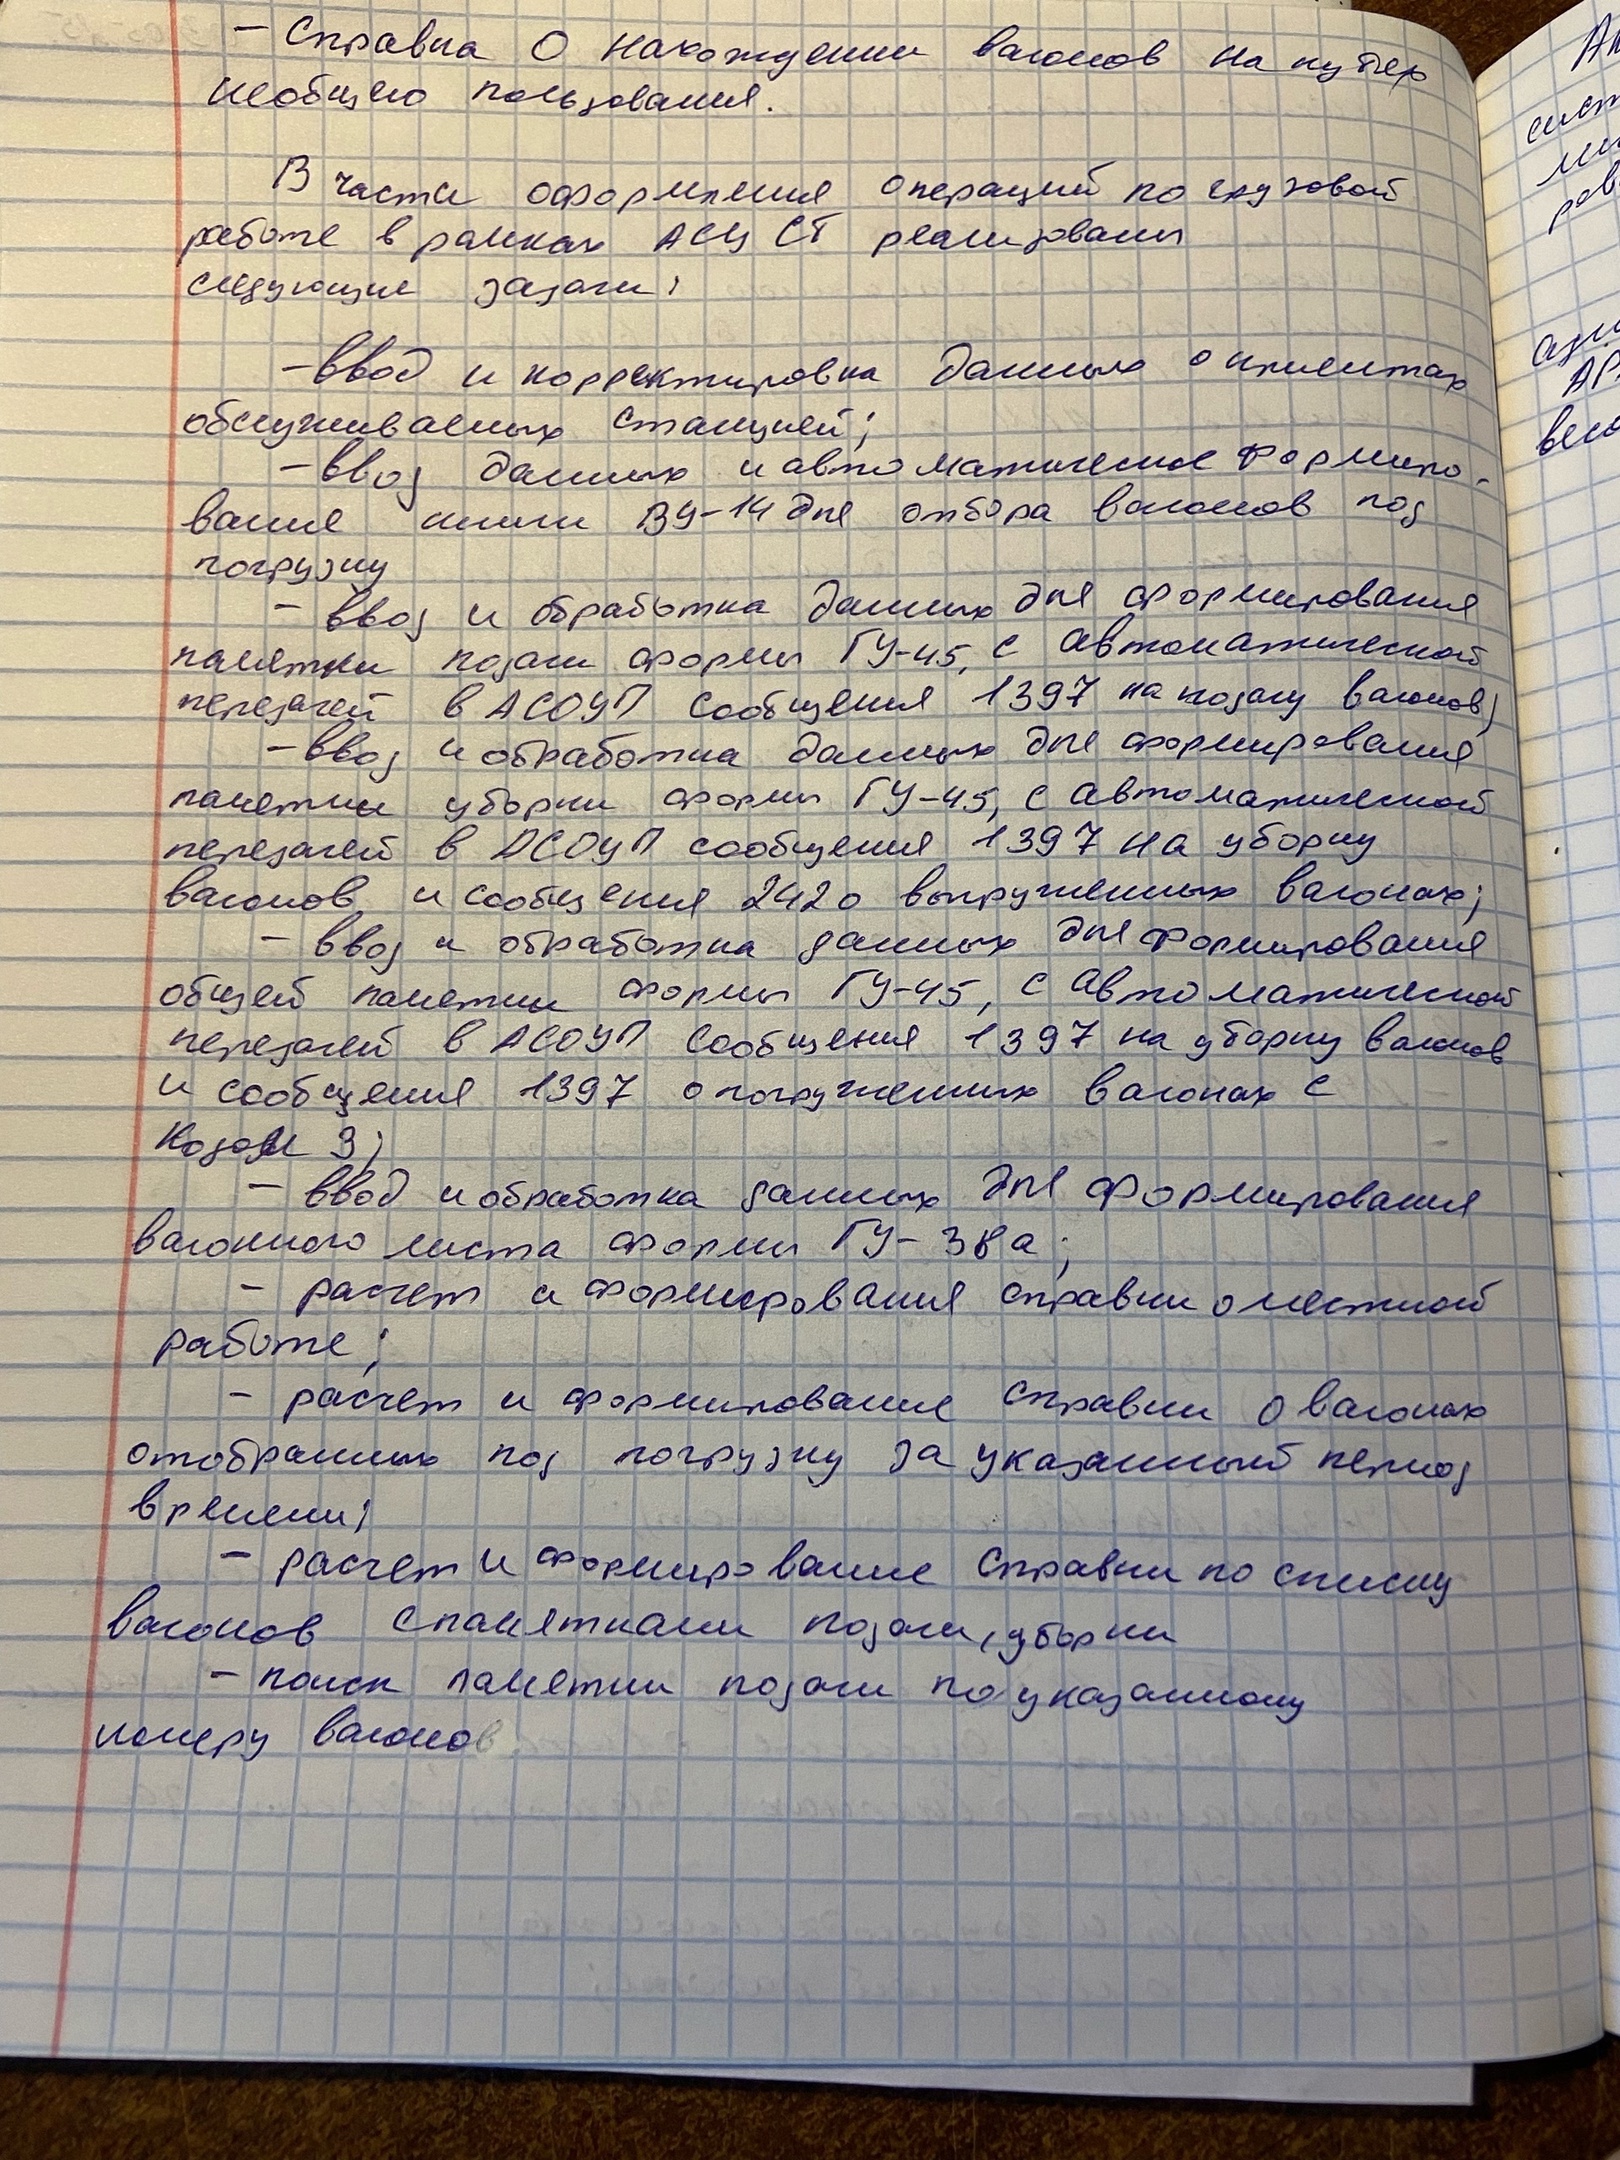 - Справка О нахождении вагонов на путях
необщего пользования.
В части оформления операций по грузовой
работе в рамках АСУ СТ реализованы
следующие задачи:
- ввод и корректировка данных о клиентах
обслуживаемых станцией;
- ввод данных и автоматическое формиро-
вание книги ВУ-14 для отбора вагонов под
погрузку
- ввод и обработка данных для формирования
памятки подачи формы ГУ-45, с автоматической
передачей в АСОУП сообщения 1397 на подачу вагонов;
- ввод и обработка данных для формирования
памятки уборки формы ГУ-45, с автоматической
передачей в АСОУП сообщения 1397 на уборку
вагонов и сообщения 242 о выгруженных вагонах;
- ввод и обработка данных для формирования
общей памятки формы ГУ-45, с автоматической
передачей в АСОУП сообщения 1397 на уборку вагонов
и сообщения 1397 о погруженных вагонах с
кодом 3;
- ввод и обработка данных для формирования
вагонного листа формы ГУ-38а;
- расчет и формирования справки о местной
работе;
- расчет и формирование справки о вагонах
отобранных под погрузку за указанный период
времени;
- расчет и формирование справки по списку
вагонов с памятками подачи, уборки
- поиск памятки подачи по указанному
номеру вагонов